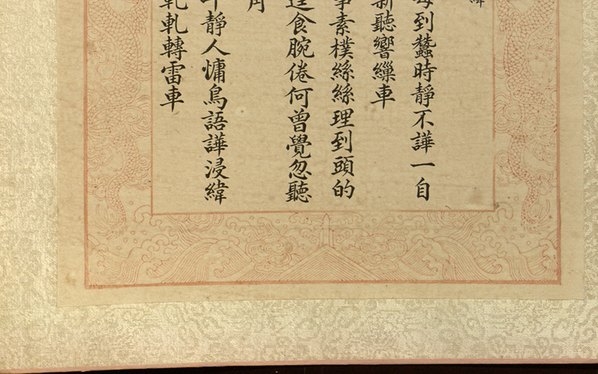 每到蠶時靜不譁一自
新聽響繅車
事素樸絲絲理到頭的
遑食腕倦何曾覺忽聽
靜人慵鳥語譁浸緯
軋軋轉雷車